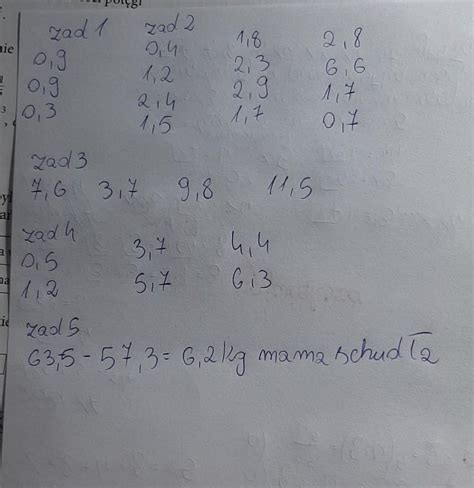 potęgi
zad 1 zad 2
0,9 0,4 1,8 2,8
0,9 1,2 2,3 6,6
0,3 2,4 2,9 1,7
1,5 1,7 0,7
zad 3
7,6 3,7 9,8 11,5
zad 4
0,5 3,7 4,4
1,2 5,7 6,3
zad 5
63,5 - 57,3 = 6,2 kg mama schudła